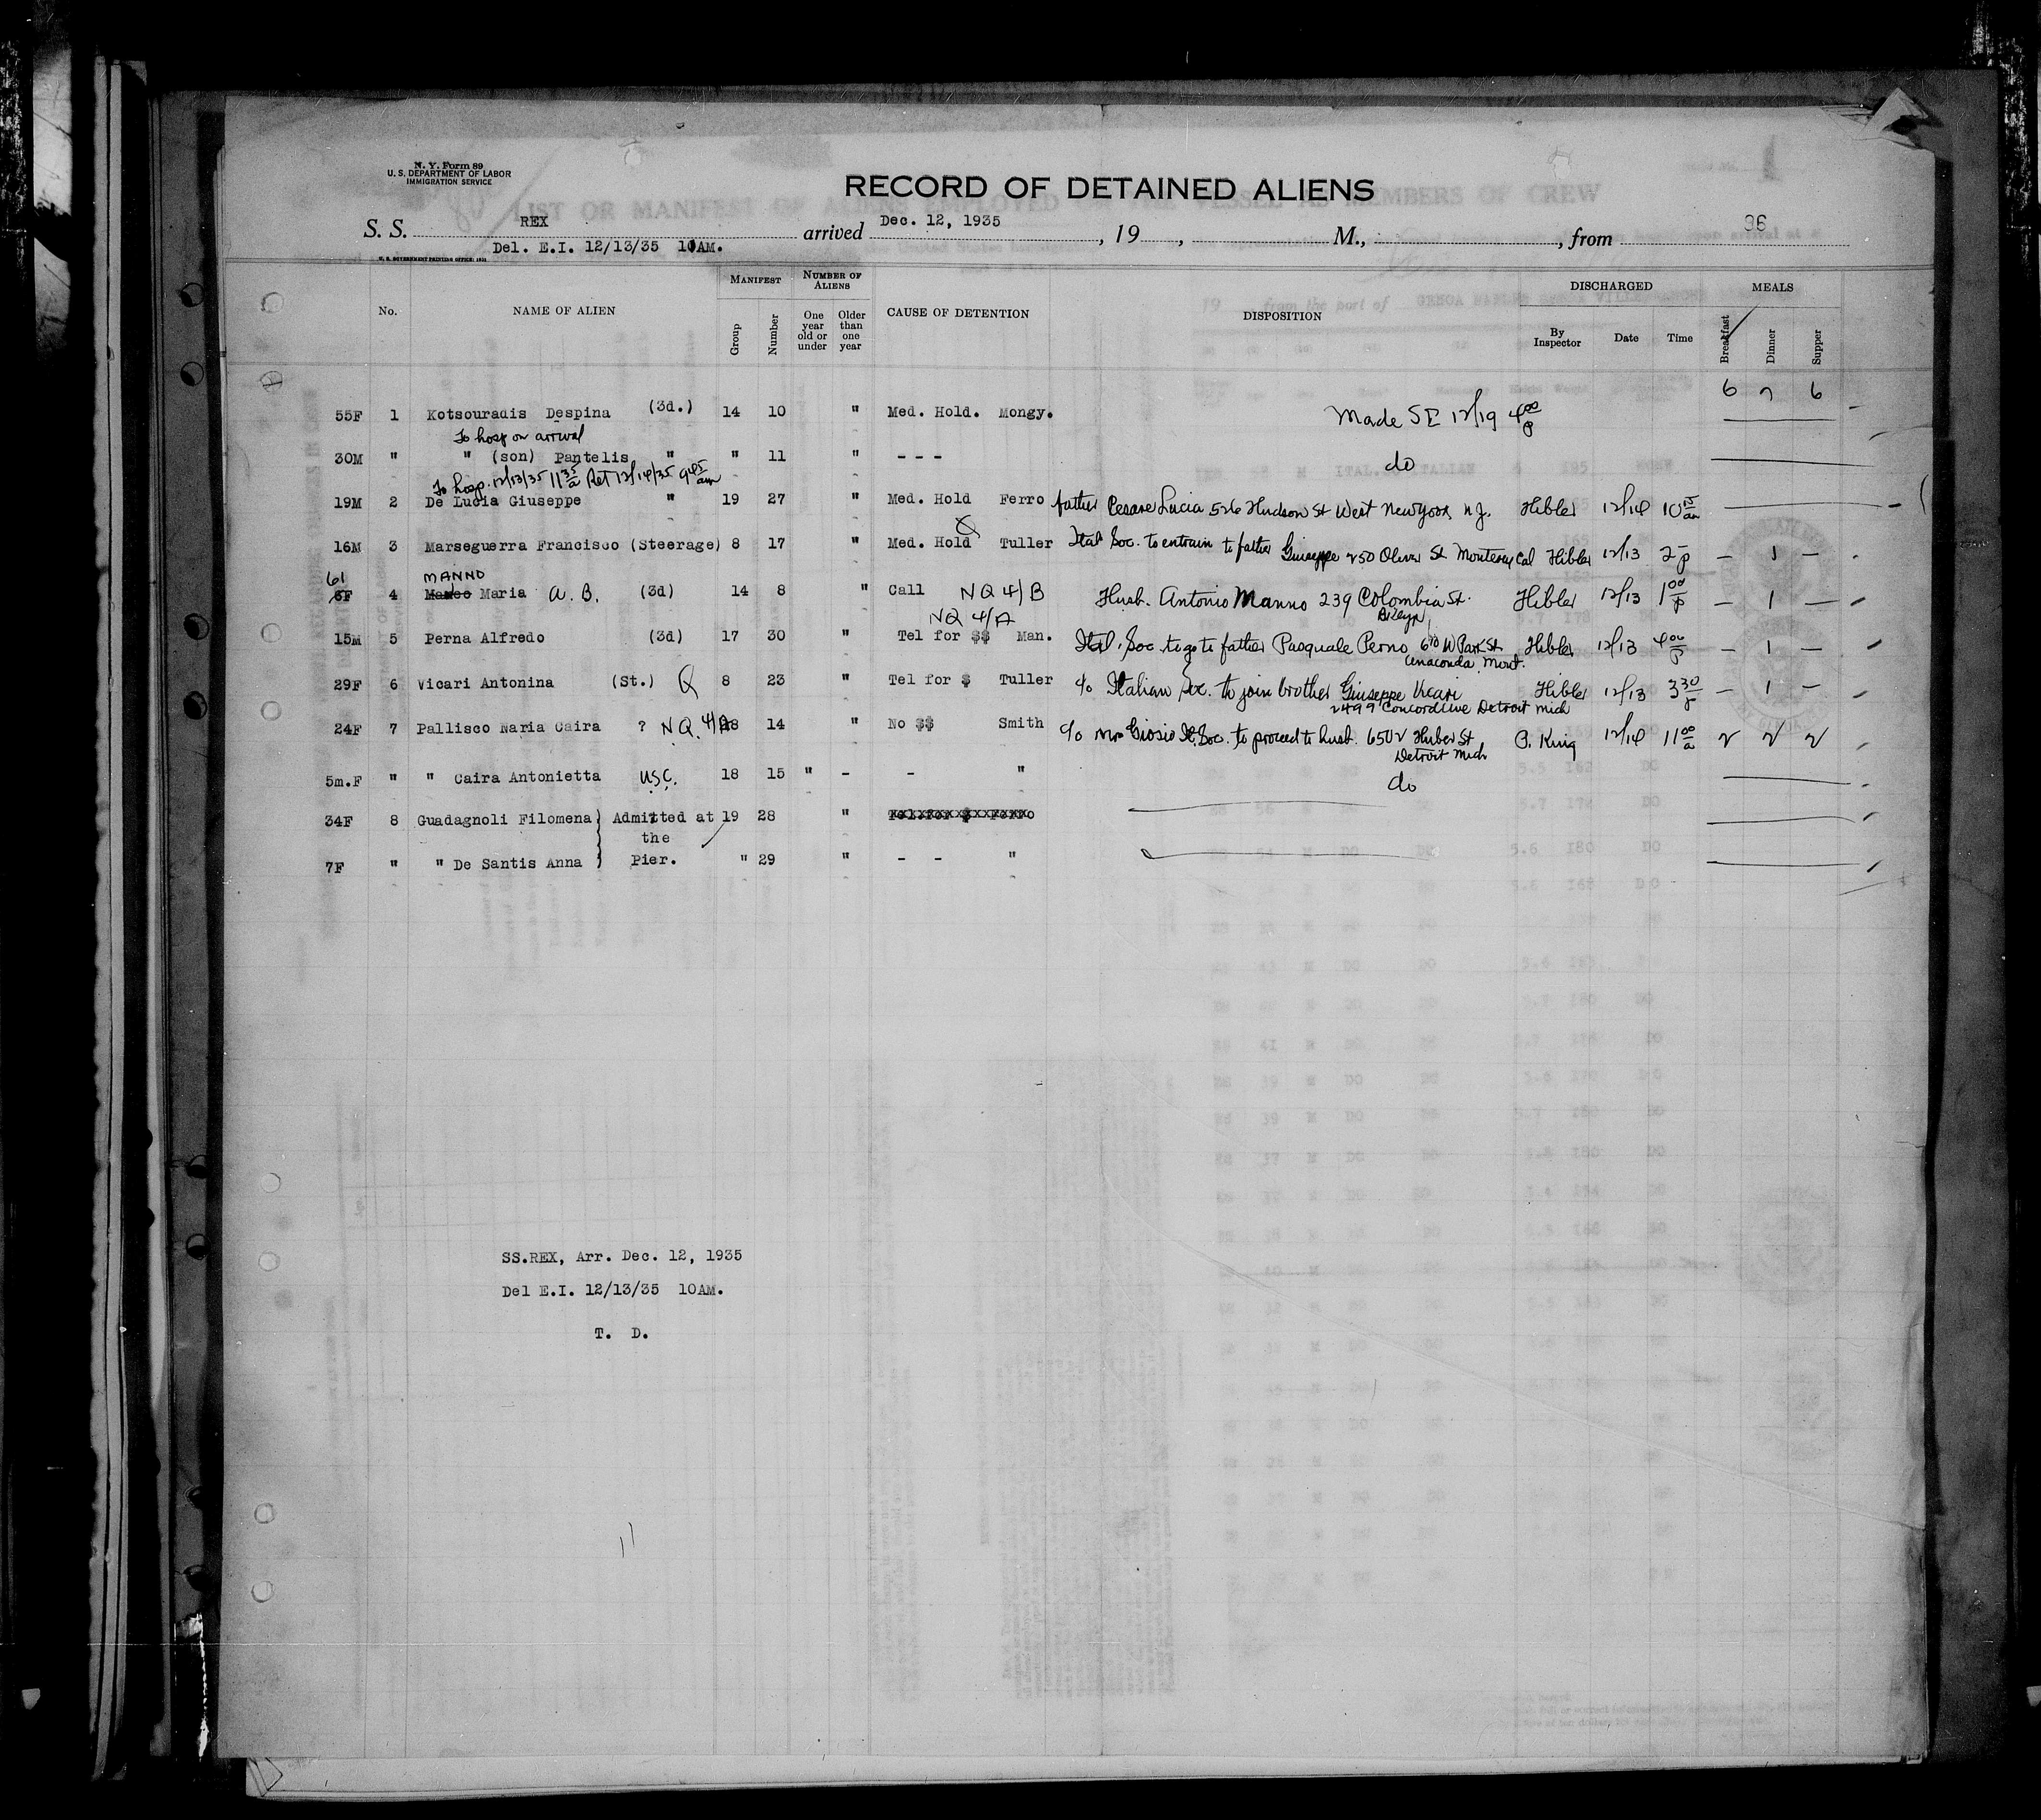 N. Y. Form 89
U. S. DEPARTMENT OF LABOR
IMMIGRATION SERVICE
RECORD OF DETAINED ALIENS
S. S. REX arrived Dec. 12, 1935, 19, M., from 96
Del. E.I. 12/13/35 10AM.
U. S. GOVERNMENT PRINTING OFFICE: 1931
No. NAME OF ALIEN MANIFEST Group Number NUMBER OF ALIENS One year old or under Older than one year CAUSE OF DETENTION DISPOSITION DISCHARGED By Inspector Date Time MEALS Breakfast Dinner Supper
6 7 6
55F 1 Kotsouradis Despina (3d.) 14 10 " Med. Hold. Mongy. Made SI 12/19 4 00 p
To hosp on arrival
30M " " (son) Pantelis " " 11 " - - - do
To hosp. 12/13/35 11 35 a Ret 12/14/35 9 45 am
19M 2 De Lucia Giuseppe " 19 27 " Med. Hold Ferro father Cesare Lucia 526 Hudson St West New York N.J. Hibler 12/14 10 15 am
16M 3 Marseguerra Francisco (Steerage) 8 17 " Med. Hold Tuller Ital Soc. to entrain to father Giuseppe 250 Oliver St Monterey Cal Hibler 12/13 2 p – 1 –
61 MANNO
4 Maria A. B. (3d) 14 8 " Call NQ 4/B Husb. Antonio Manno 239 Colombia St. Bklyn Hibler 12/13 1 00 p – 1 –
NQ 4/A
15M 5 Perna Alfredo (3d) 17 30 " Tel for $$ Man. Ital. Soc. to go to father Pasquale Perno 610 W Park St Anaconda, Mont. Hibler 12/13 4 00 p – 1 –
29F 6 Vicari Antonina (St.) Q 8 23 " Tel for $ Tuller c/o Italian Soc. to join brother Giuseppe Vicari 2499 Concord Ave Detroit Mich Hibler 12/13 3 30 p – 1 –
24F 7 Pallisco Maria Caira ? NQ. 4/A 18 14 " No $$ Smith c/o Mr Giosio It. Soc. to proceed to husb. 6502 Huber St Detroit Mich P. King 12/14 11 00 a 2 2 2
5m.F " " Caira Antonietta USC. 18 15 " - - " do
34F 8 Guadagnoli Filomena Admitted at 19 28 "
the
7F " " De Santis Anna Pier. " 29 " - - "
SS.REX, Arr. Dec. 12, 1935
Del E.I. 12/13/35 10AM.
T. D.
11